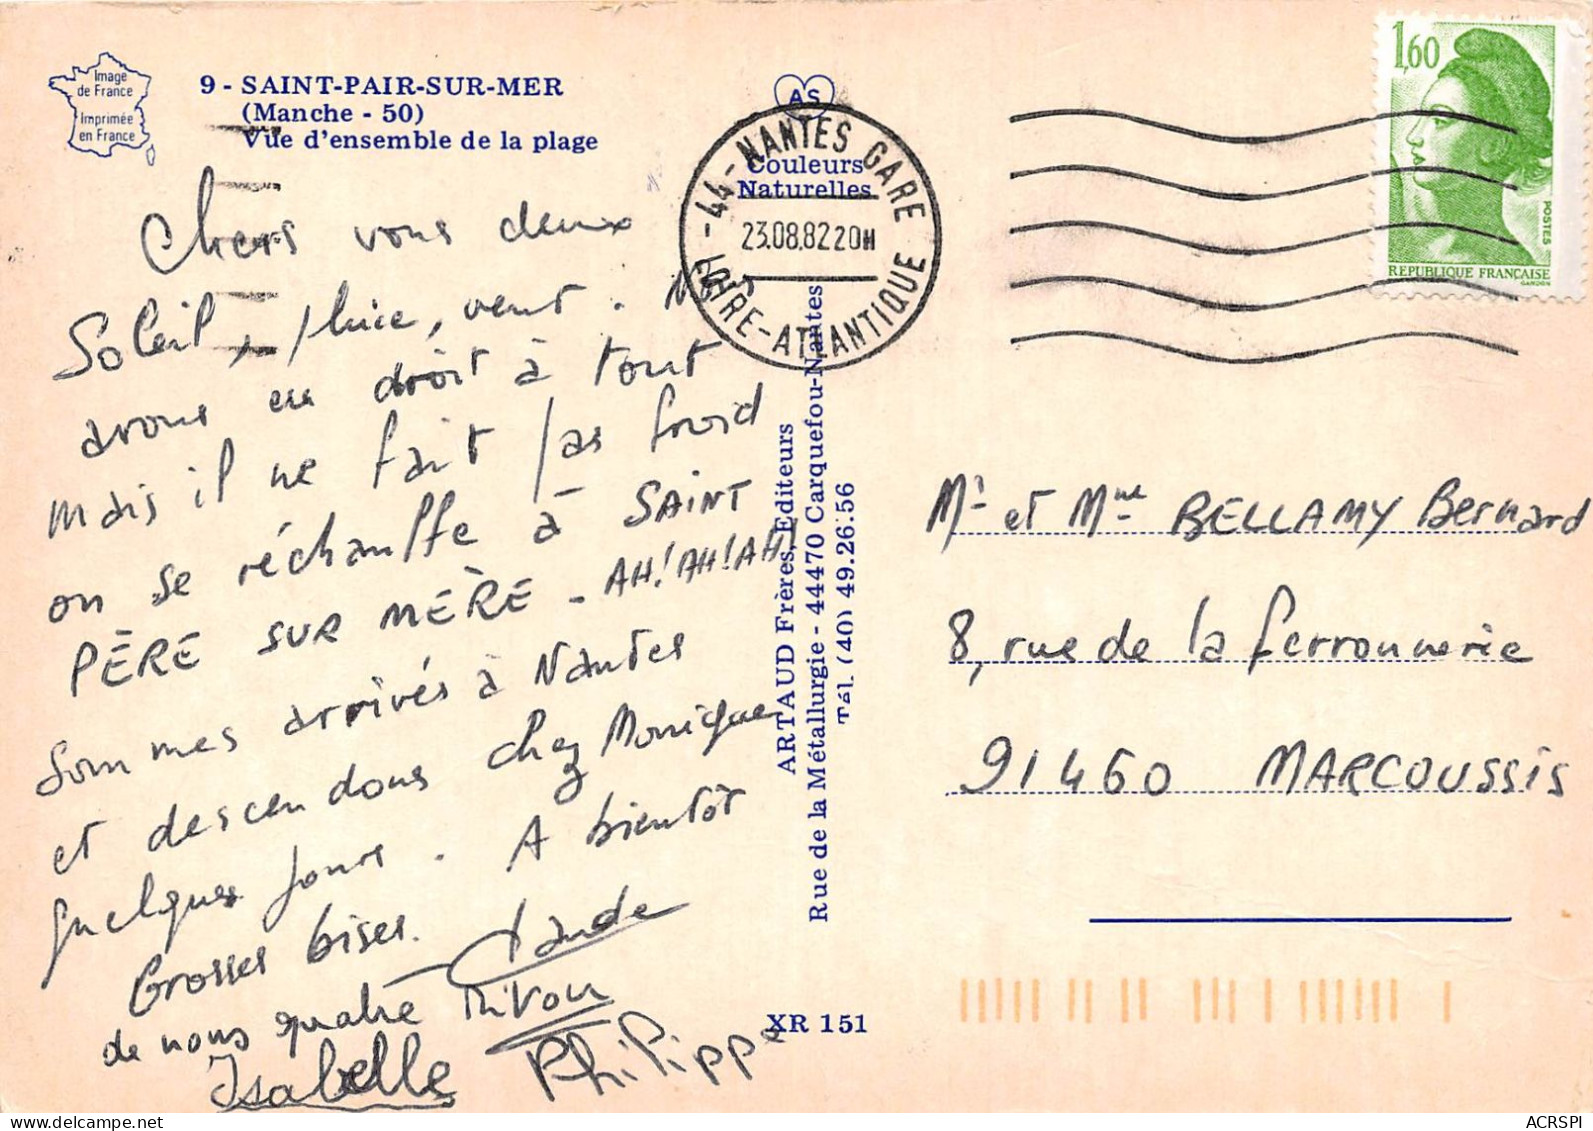 Image
de France
Imprimée
en France
9 - SAINT-PAIR-SUR-MER
(Manche - 50)
Vue d'ensemble de la plage
AS
Couleurs
Naturelles
44 - NANTES GARE
23.08.82 20H
LOIRE-ATLANTIQUE
1,60
POSTES
REPUBLIQUE FRANÇAISE
GANDON
Chers vous deux
Soleil, pluie, vent. Ns
avons eu droit à tout
mais il ne fait pas froid
on se réchauffe à SAINT
PÈRE SUR MÈRE - AH! AH! AH!
Sommes arrivés à Nantes
et descendons chez Monique
quelques jours. A bientôt
Grosses bises.
de nous quatre
Claude
Isabelle
Philippe
ARTAUD Frères, Editeurs
Rue de la Métallurgie - 44470 Carquefou-Nantes
Tél. (40) 49.26.56
XR 151
Mr et Mme BELLAMY Bernard
8, rue de la ferronnerie
91460 MARCOUSSIS
ACRSPI